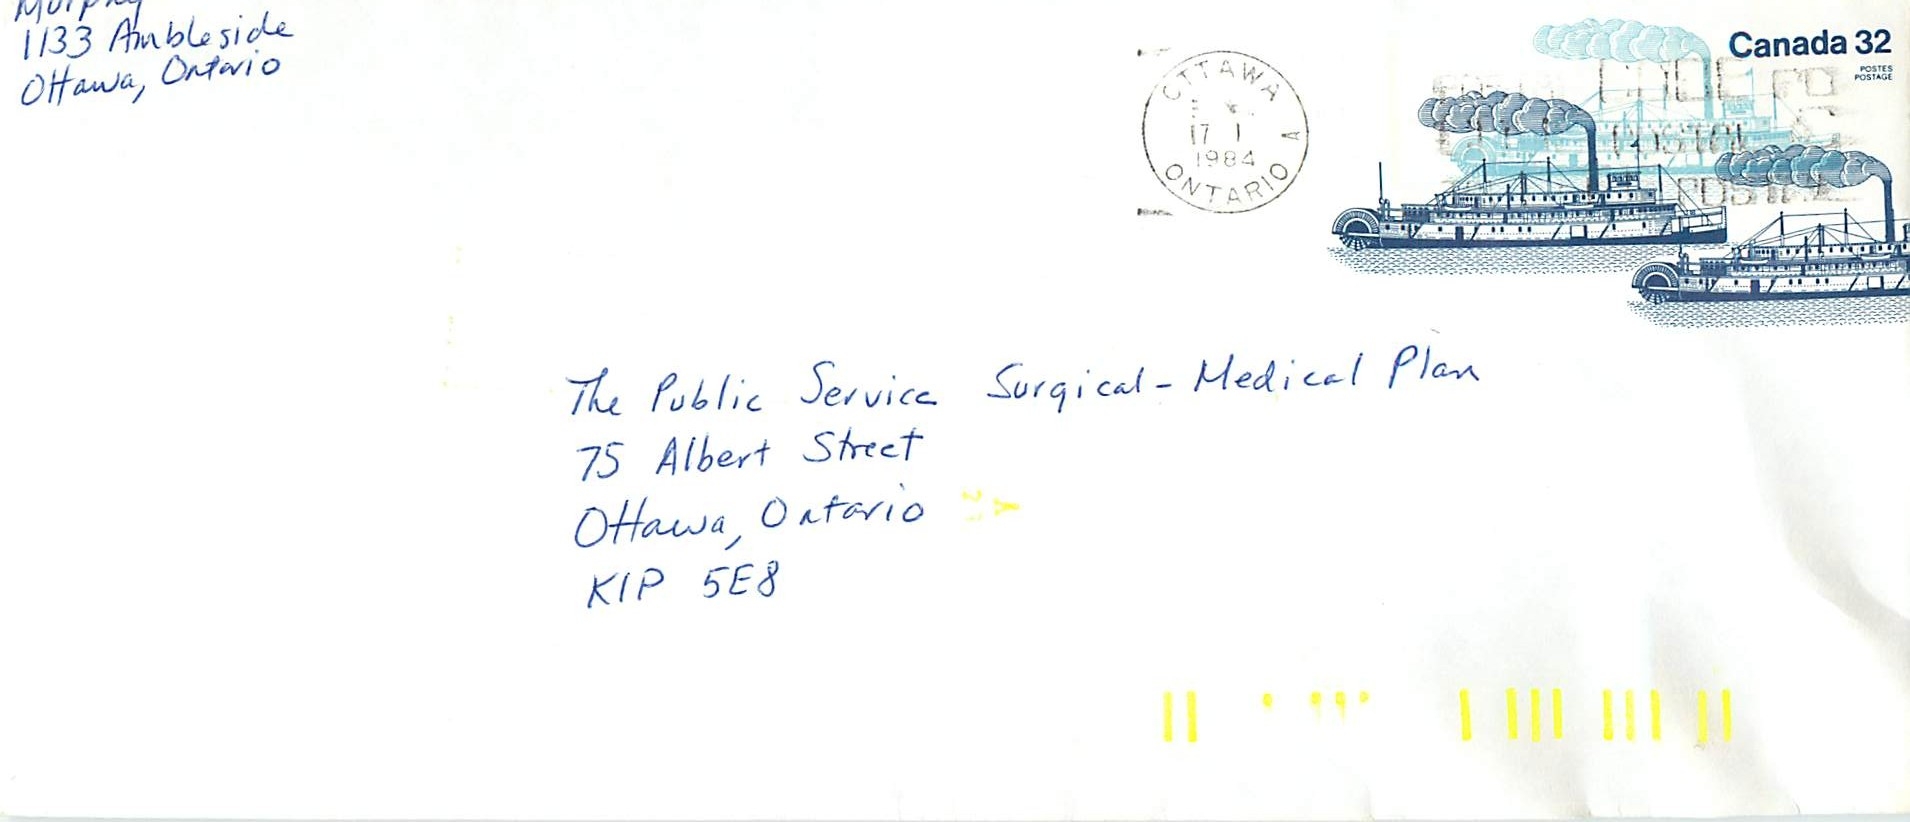 Murphy
1133 Ambleside
Ottawa, Ontario
Canada 32
POSTES
POSTAGE
OTTAWA
17 I
1984
ONTARIO
A
The Public Service Surgical-Medical Plan
75 Albert Street
Ottawa, Ontario
K1P 5E8